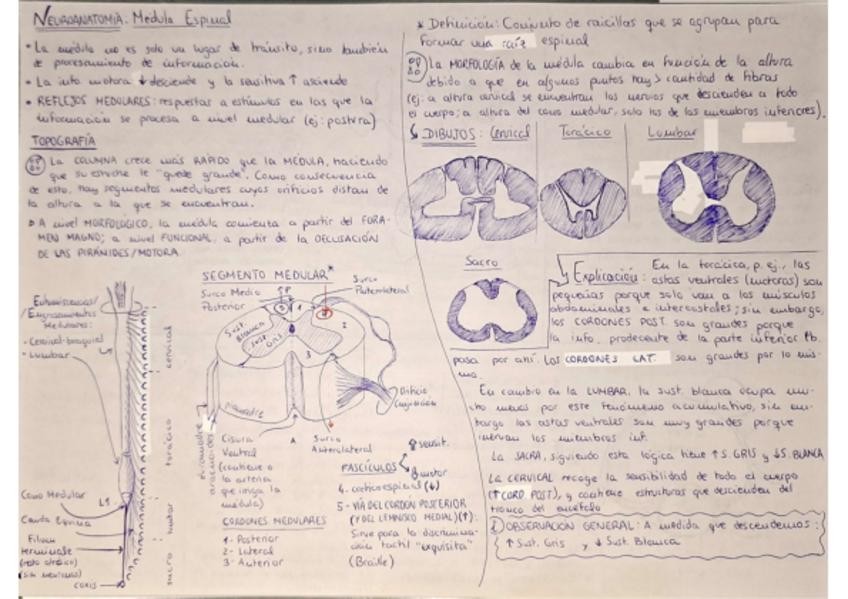 NEUROANATOMÍA: Médula Espinal
• La médula no es solo un lugar de tránsito, sino también
de procesamiento de información.
• La info motora ↓ desciende y la sensitiva ↑ asciende
• REFLEJOS MEDULARES: respuestas a estímulos en las que la
información se procesa a nivel medular (ej: postura)
TOPOGRAFÍA
La COLUMNA crece más RÁPIDO que la MÉDULA, haciendo
que su estuche le "quede grande". Como consecuencia
de esto, hay segmentos medulares cuyos orificios distan de
la altura a la que se encuentran.
A nivel MORFOLÓGICO, la médula comienza a partir del FORA-
MEN MAGNO; a nivel FUNCIONAL, a partir de la DECUSACIÓN
DE LAS PIRÁMIDES/MOTORA.
Intumescencias/
Engrosamientos
Medulares:
- Cervical-braquial
- Lumbar
cervical
torácico
lumbar
sacro
Cono Medular
L1
Cauda Equina
Filum
terminale
(resto atrófico)
(sin neuronas)
COXIS
SEGMENTO MEDULAR*
Surco Medio
Posterior
Surco
Posterolateral
Sust.
Blanca
Sust.
Gris
1
2
3
Piamadre
Orificio
Conjunción
Cisura
Ventral
(contiene a
la arteria
que irriga la
médula)
A
Surco
Anterolateral
CORDONES MEDULARES
1- Posterior
2- Lateral
3- Anterior
FASCÍCULOS
sensit.
motor
4- corticoespinal (↓)
5- VÍA DEL CORDÓN POSTERIOR
(Y DEL LEMNISCO MEDIAL)(↑):
Sirve para la discrimina-
ción táctil "exquisita"
(Braille)
* Definición: Conjunto de raicillas que se agrupan para
formar una raíz espinal
La MORFOLOGÍA de la médula cambia en función de la altura
debido a que en algunos puntos hay > cantidad de fibras
(ej: a altura cervical se encuentran los nervios que descienden a todo
el cuerpo; a altura del cono medular, solo los de los miembros inferiores).
DIBUJOS: Cervical
Torácico
Lumbar
Sacro
Explicación: En la torácica, p. ej., las
astas ventrales (motoras) son
pequeñas porque solo van a los músculos
abdominales e intercostales; sin embargo,
los CORDONES POST. son grandes porque
la info. procedente de la parte inferior tb.
pasa por ahí. Los CORDONES LAT. son grandes por lo mis-
mo.
En cambio en la LUMBAR, la sust. blanca ocupa mu-
cho menos por este fenómeno acumulativo, sin em-
bargo las astas ventrales son muy grandes porque
inervan los miembros inf.
La SACRA, siguiendo esta lógica tiene ↑S. GRIS y ↓S. BLANCA
La CERVICAL recoge la sensibilidad de todo el cuerpo
(↑CORD. POST), y contiene estructuras que descienden del
tronco del encéfalo
OBSERVACIÓN GENERAL: A medida que descendemos:
↑ Sust. Gris y ↓ Sust. Blanca